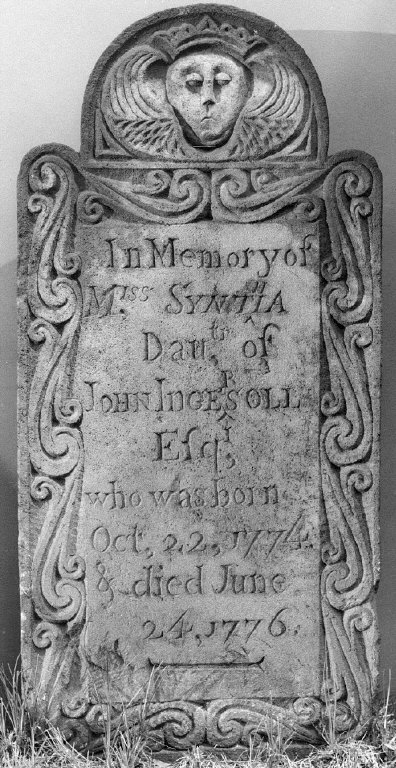 In Memory of
M^iss SYNTHIA
Dau^tr of
JOHN INGERSOLL
Eſq^r,
who was born
Oct, 22, 1774.
& died June
24, 1776.